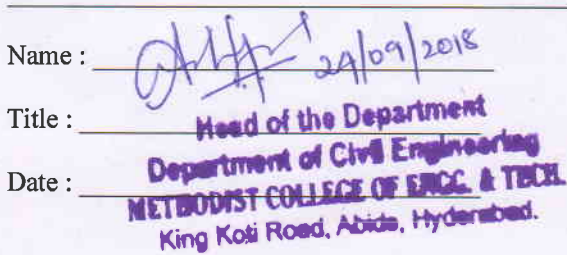 Name :
24/09/2018
Title :
Head of the Department
Department of Civil Engineering
Date :
METHODIST COLLEGE OF ENGG. & TECH.
King Koti Road, Abids, Hyderabad.